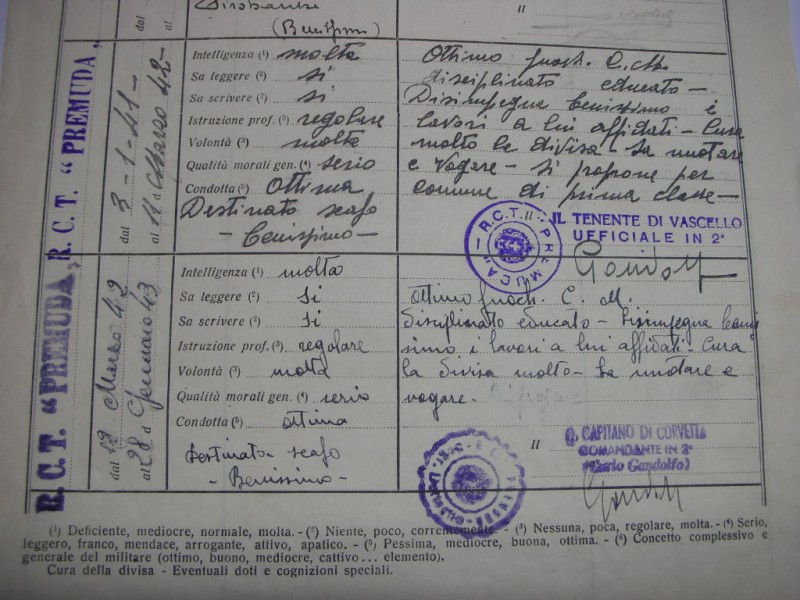 (Benissimo)
"
R. C. T. "PREMUDA„
R. C. T. "PREMUDA„
dal 3-1-41-
al 11 Marzo 42-
Intelligenza (¹) molta
Sa leggere (²) sì
Sa scrivere (²) sì
Istruzione prof. (³) regolare
Volontà (¹) molta
Qualità morali gen. (⁴) serio
Condotta (⁵) Ottima
Destinato scafo
- benissimo -
Ottimo fuoch. C. M.
disciplinato educato -
Disimpegna benissimo i
lavori a lui affidati - Cura
molto la divisa - sa nuotare
e vogare - si propone per
comune di prima classe -
"
R.C.T. PREMUDA
IL TENENTE DI VASCELLO
UFFICIALE IN 2ª
dal 12 Marzo 42
al 28 Gennaio 43
Intelligenza (¹) molta
Sa leggere (²) sì
Sa scrivere (²) sì
Istruzione prof. (³) regolare
Volontà (¹) molta
Qualità morali gen. (⁴) serio
Condotta (⁵) ottima
Destinato scafo
- Benissimo -
Ottimo fuoch. C. M.
disciplinato educato - Disimpegna benis
simo i lavori a lui affidati - Cura
la divisa molto - Sa nuotare e
vogare -
"
CAPITANO DI CORVETTA
COMANDANTE IN 2ª
(Carlo Gandolfo)
(¹) Deficiente, mediocre, normale, molta. - (²) Niente, poco, correntemente. - (³) Nessuna, poca, regolare, molta. - (⁴) Serio,
leggero, franco, mendace, arrogante, attivo, apatico. - (⁵) Pessima, mediocre, buona, ottima. - (⁶) Concetto complessivo e
generale del militare (ottimo, buono, mediocre, cattivo... elemento).
Cura della divisa - Eventuali doti e cognizioni speciali.